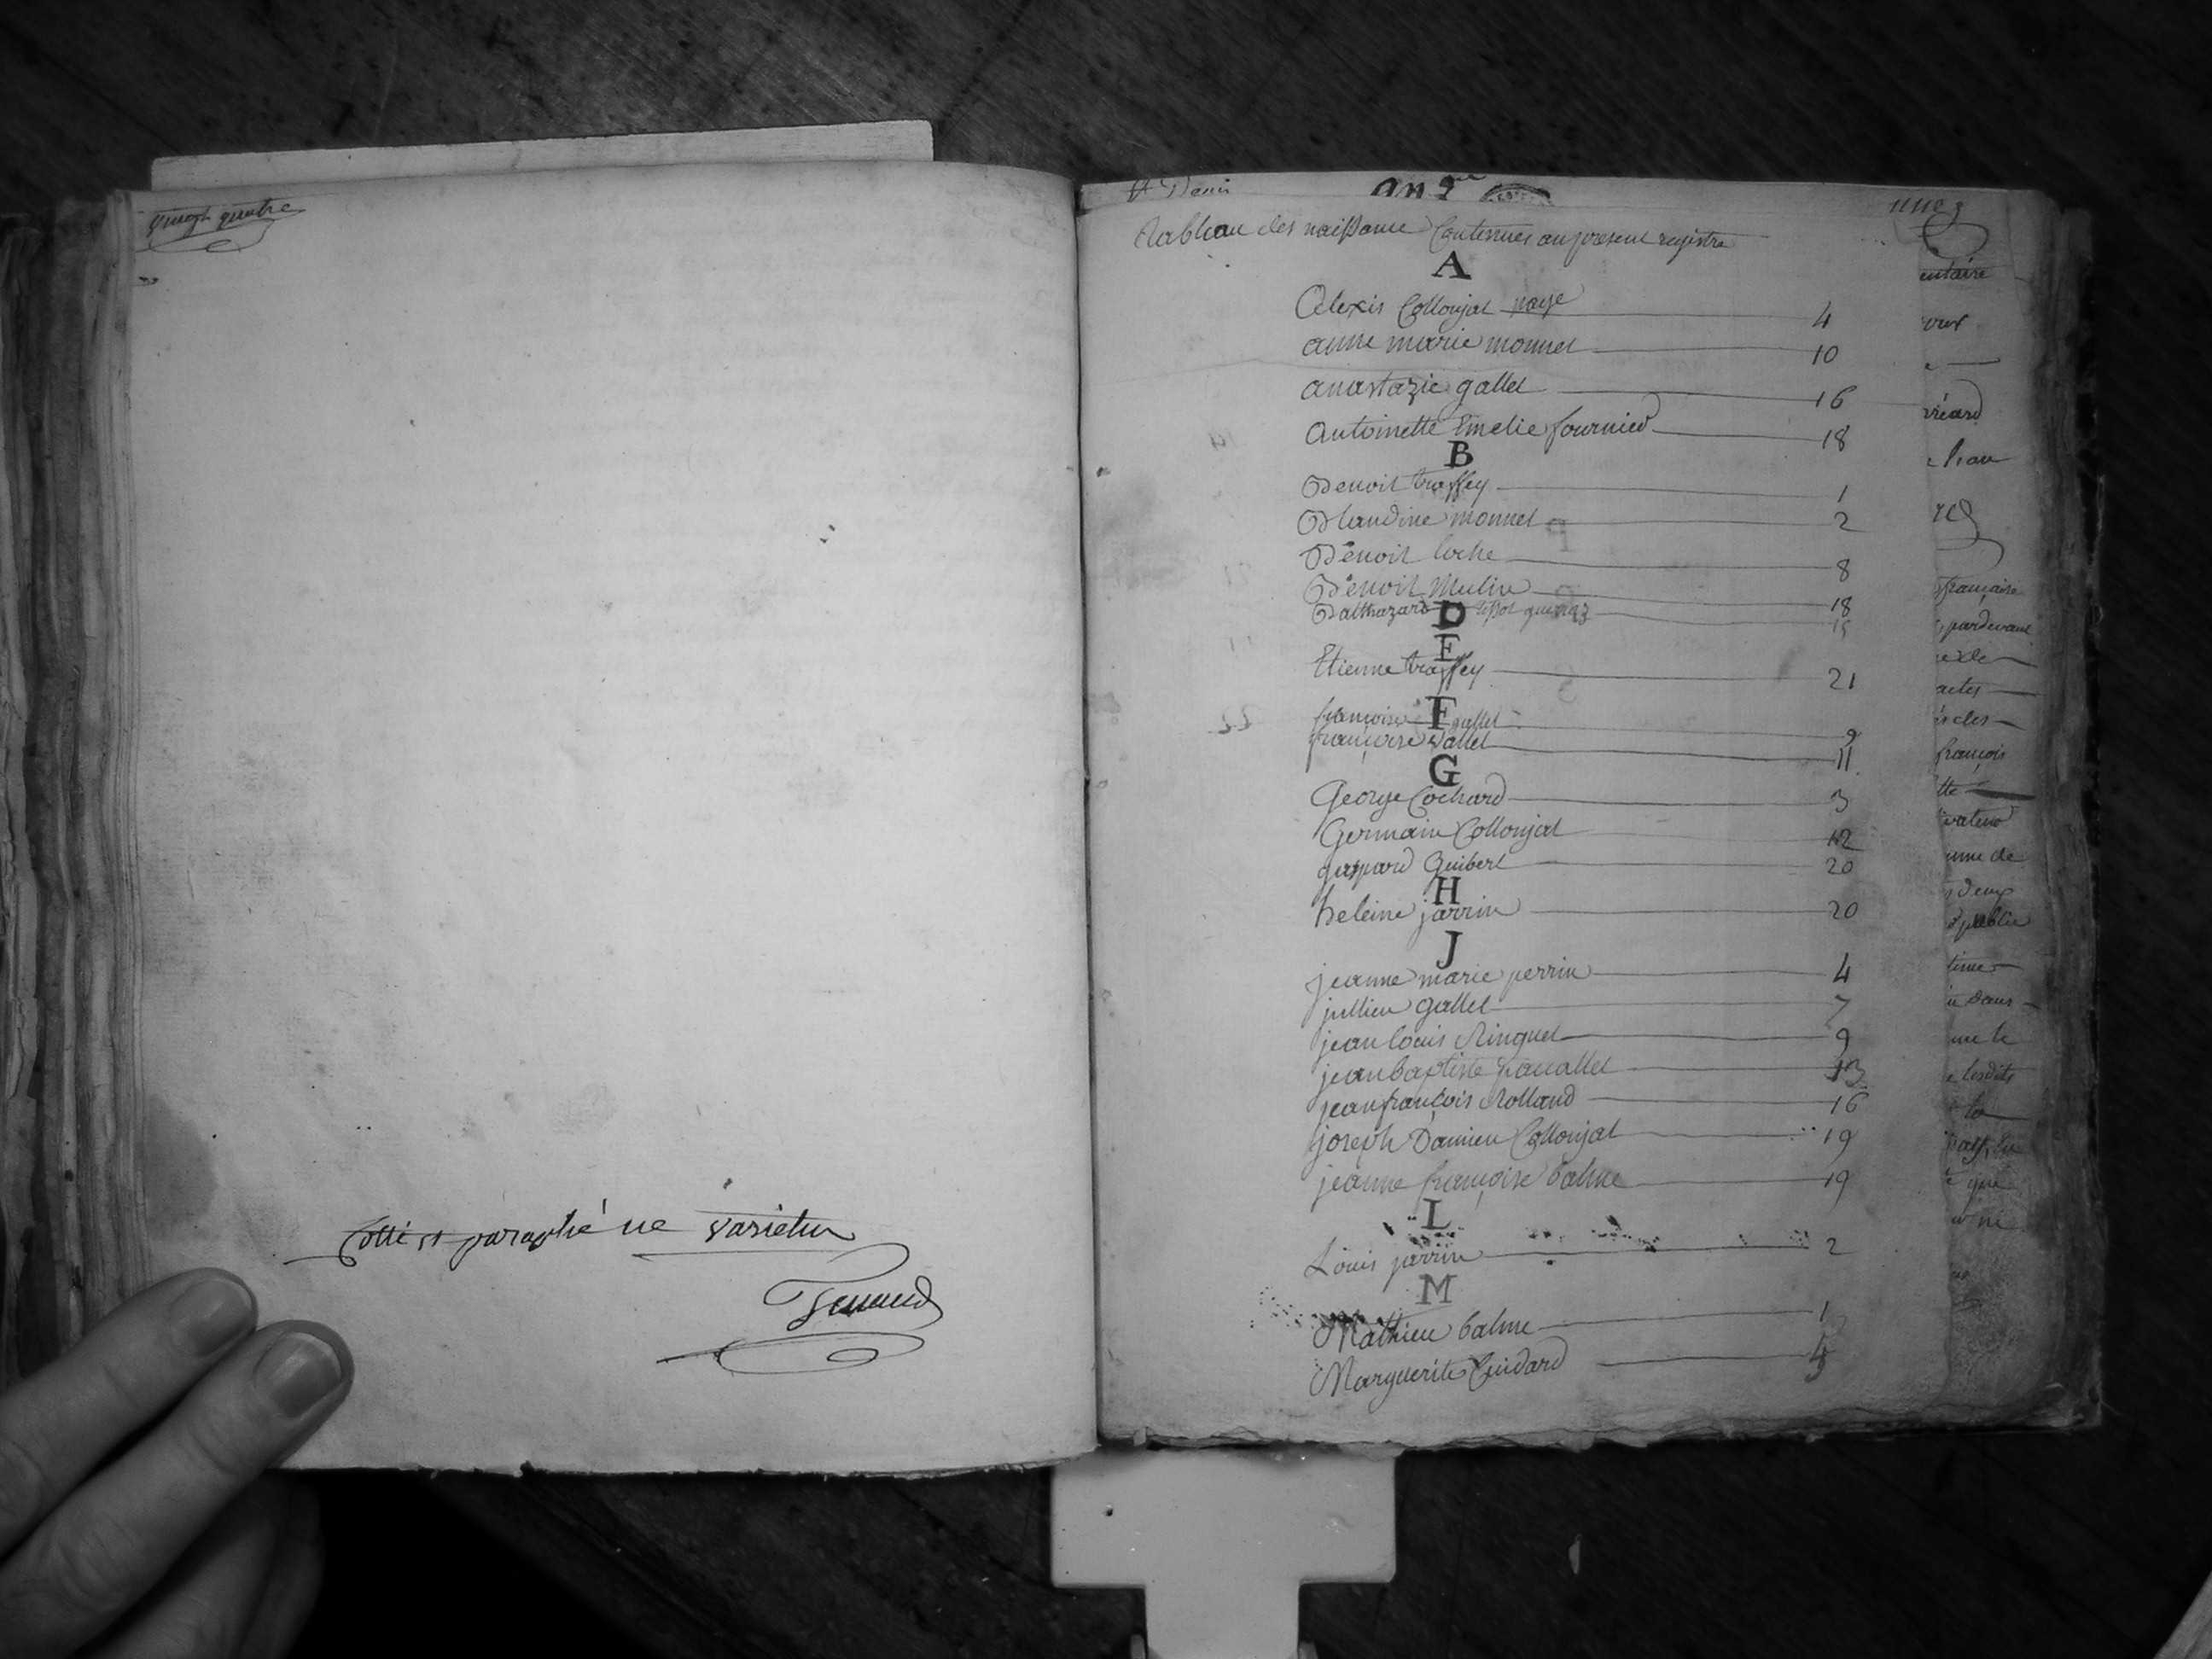 vingt quatre
Cotté et paraphé ne varietur
St Denis an 9me
Tableau des naissance Contenues au present registre
A
Alexis Collonjat page 4
anne marie monnet 10
anastazie gallet 16
Antoinette Emelie fournier 18
B
Benoit traffey 1
Blandine monnet 2
Benoit loche 8
Benoit Mulin 18
Balthazard
D
E
Etienne traffey 21
F
françoise gallet 9
françoise vallet 11
G
George Cochard 3
Germain Collonjat 12
gaspard Guibert 20
H
heleine jarrin 20
J
jeanne marie perrin 4
jullien gallet 7
jean louis Ringuet 9
jean baptiste 13
jean françois Rolland 16
joseph Damien Collonjat 19
jeanne françoise balme 19
L
Louis jarrin 2
M
Mathieu balme 1
Marguerite Cuidard
entaire
française
pardevant
actes
françois
unne de
deux
publie
dans
lesdits
que